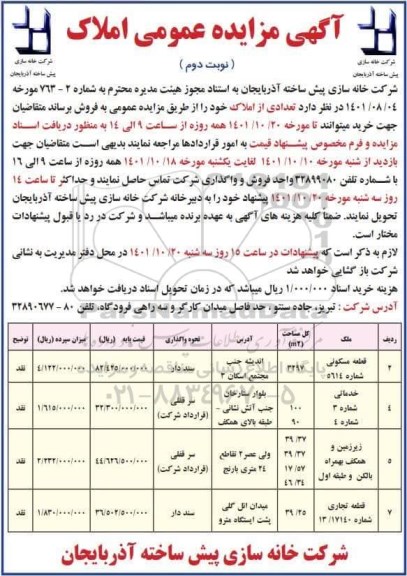 آگهی مزایده عمومی املاک
( نوبت دوم )
شرکت خانه سازی
پیش ساخته آذربایجان
شرکت خانه سازی
پیش ساخته آذربایجان
شرکت خانه سازی پیش ساخته آذربایجان به استناد مجوز هیئت مدیره محترم به شماره ۲ - ۷۶۳ مورخه
۱۴۰۱/۰۸/۰۴ در نظر دارد تعدادی از املاک خود را از طریق مزایده عمومی به فروش برساند متقاضیان
جهت خرید میتوانند تا مورخه ۱۴۰۱/۱۰/۲۰ همه روزه از ساعت ۹ الی ۱۴ به منظور دریافت اسناد
مزایده و فرم مخصوص پیشنهاد قیمت به امور قراردادها مراجعه نمایند بدیهی است متقاضیان جهت
بازدید از شنبه مورخه ۱۴۰۱/۱۰/۱۰ لغایت یکشنبه مورخه ۱۴۰۱/۱۰/۱۸ همه روزه از ساعت ۹ الی ۱۶
با شماره تلفن ۳۲۸۹۹۰۸۰ واحد فروش و واگذاری شرکت تماس حاصل نمایند و حداکثر تا ساعت ۱۴
روز سه شنبه مورخه ۱۴۰۱/۱۰/۲۰ پیشنهاد خود را به دبیرخانه شرکت خانه سازی پیش ساخته آذربایجان
تحویل نمایند. ضمنا کلیه هزینه های آگهی به عهده برنده میباشد و شرکت در رد یا قبول پیشنهادات
مختار است.
لازم به ذکر است که پیشنهادات در ساعت ۱۵ روز سه شنبه ۱۴۰۱/۱۰/۲۰ در محل دفتر مدیریت به نشانی
شرکت باز گشایی خواهد شد
هزینه خرید اسناد ۱/۰۰۰/۰۰۰ ریال میباشد که در زمان تحویل اسناد دریافت خواهد شد.
آدرس شرکت : تبریز، جاده سنتو، حد فاصل میدان کارگر و سه راهی فرودگاه، تلفن ۸۰ - ۳۲۸۹۰۶۷۷
ردیف ملک کل مساحت (m2) آدرس نحوه واگذاری قیمت پایه (ریال) میزان سپرده (ریال) توضیح
۲ قطعه مسکونی شماره ۵۶۱۴ ۳۲۹۷ اندیشه جنب مجتمع اسکان ۲ سند دار ۸۲/۴۲۵/۰۰۰/۰۰۰ ۴/۱۲۲/۰۰۰/۰۰۰ نقد
۴ خدماتی شماره ۳ شماره ۴ ۱۰۰ ۹۰ بلوار ستارخان جنب آتش نشانی - طبقه بالای همکف سر قفلی (قرارداد شرکت) ۳۲/۳۰۰/۰۰۰/۰۰۰ ۱/۶۱۵/۰۰۰/۰۰۰ نقد
۵ زیرزمین و همکف بهمراه بالکن و طبقه اول ۳۹/۳۷ ۳۹/۳۷ ۱۷/۵۷ ۴۶/۳۴ ولی عصر۲ تقاطع ۲۴ متری بارنج سر قفلی (قرارداد شرکت) ۴۴/۶۲۶/۵۰۰/۰۰۰ ۲/۲۳۲/۰۰۰/۰۰۰ نقد
۷ قطعه تجاری شماره ۱۳/۱۷۱۴۰ ۳۹/۲۵ میدان ائل گلی پشت ایستگاه مترو سند دار ۳۶/۵۰۲/۵۰۰/۰۰۰ ۱/۸۳۰/۰۰۰/۰۰۰ نقد
شرکت خانه سازی پیش ساخته آذربایجان
ParsNamadData
۰۲۱-۸۸۳۴۹۶۷۰-۵